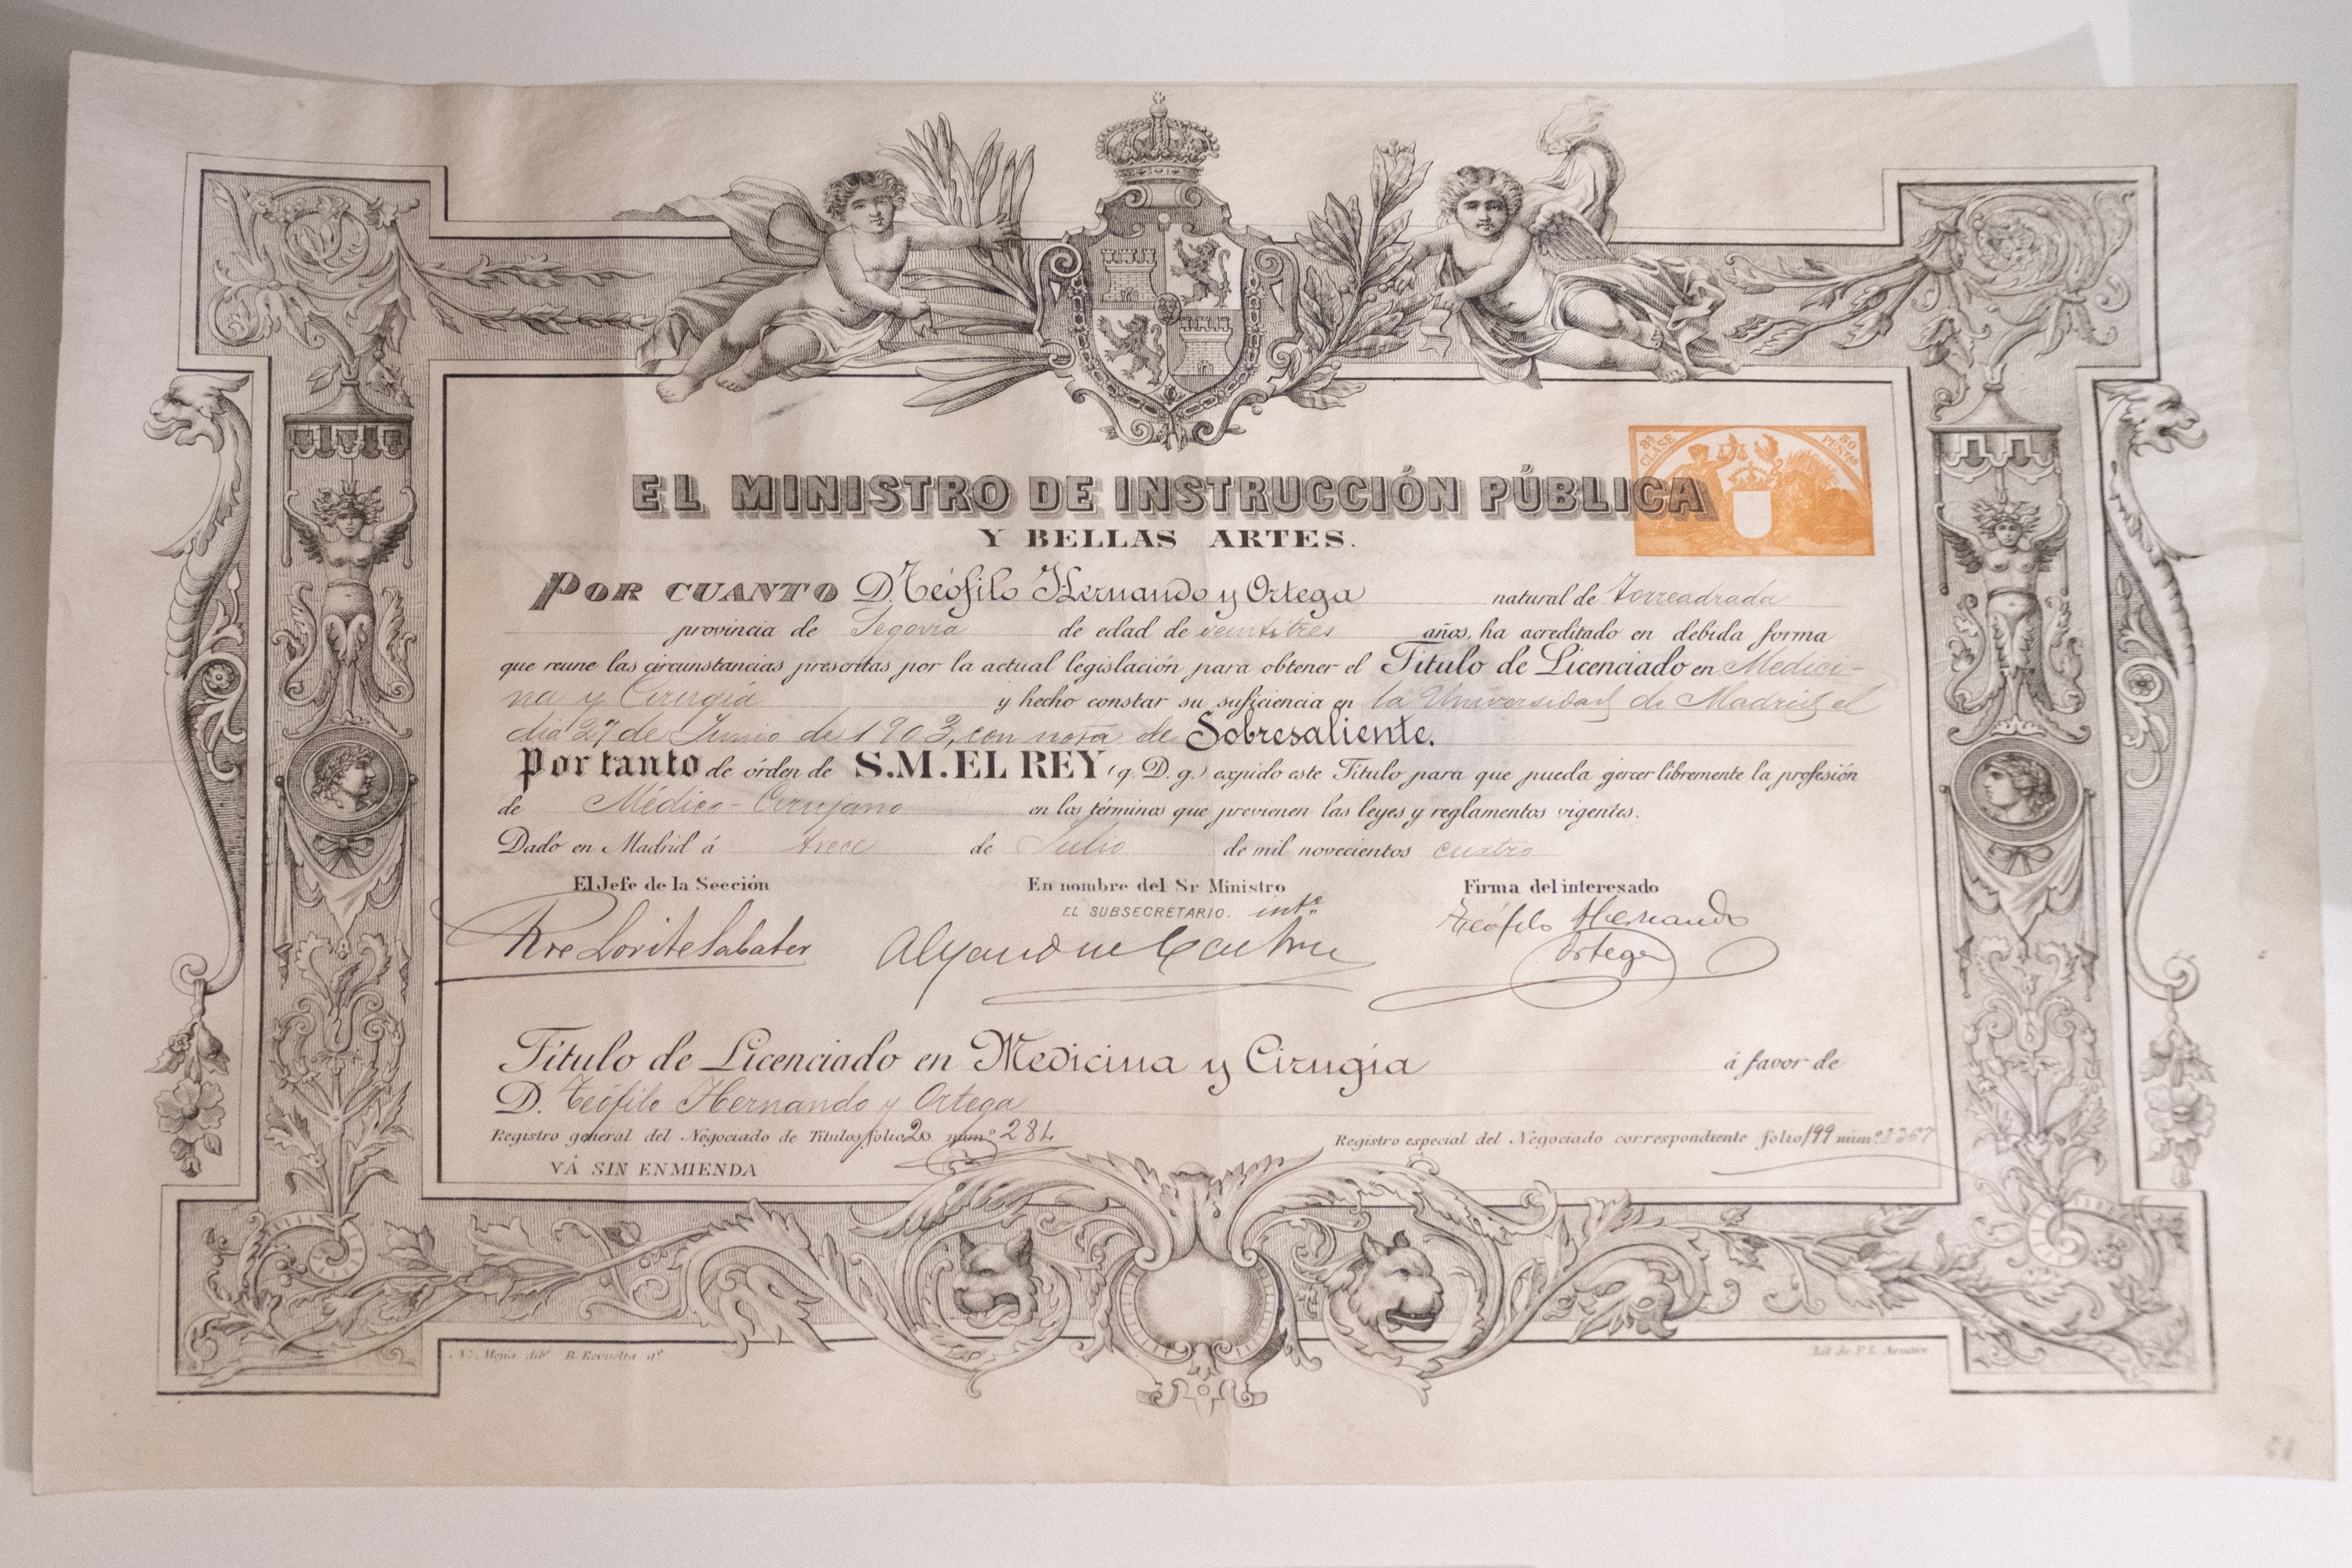 3ª CLASE 50 PESTAS
EL MINISTRO DE INSTRUCCIÓN PÚBLICA
Y BELLAS ARTES.
POR CUANTO D. Teófilo Hernando y Ortega natural de Torreadrada
provincia de Segovia de edad de veintitres años, ha acreditado en debida forma
que reune las circunstancias prescritas por la actual legislación para obtener el Título de Licenciado en Medici-
na y Cirugía y hecho constar su suficiencia en la Universidad de Madrid el
dia 27 de Junio de 1903, con nota de Sobresaliente.
Por tanto de órden de S.M. EL REY (q. D. g.) expido este Título para que pueda ejercer libremente la profesión
de Médico-Cirujano en los términos que previenen las leyes y reglamentos vigentes.
Dado en Madrid á trece de Julio de mil novecientos cuatro
El Jefe de la Sección En nombre del Sr Ministro Firma del interesado
EL SUBSECRETARIO. intº
Lorite Sabater Teófilo Hernando
Ortega
Título de Licenciado en Medicina y Cirugía á favor de
D. Teófilo Hernando y Ortega
Registro general del Negociado de Títulos folio 20 núm.º 284 Registro especial del Negociado correspondiente folio 199 núm.º
VÁ SIN ENMIENDA
N. Mejía dibº R. Revuelta gº